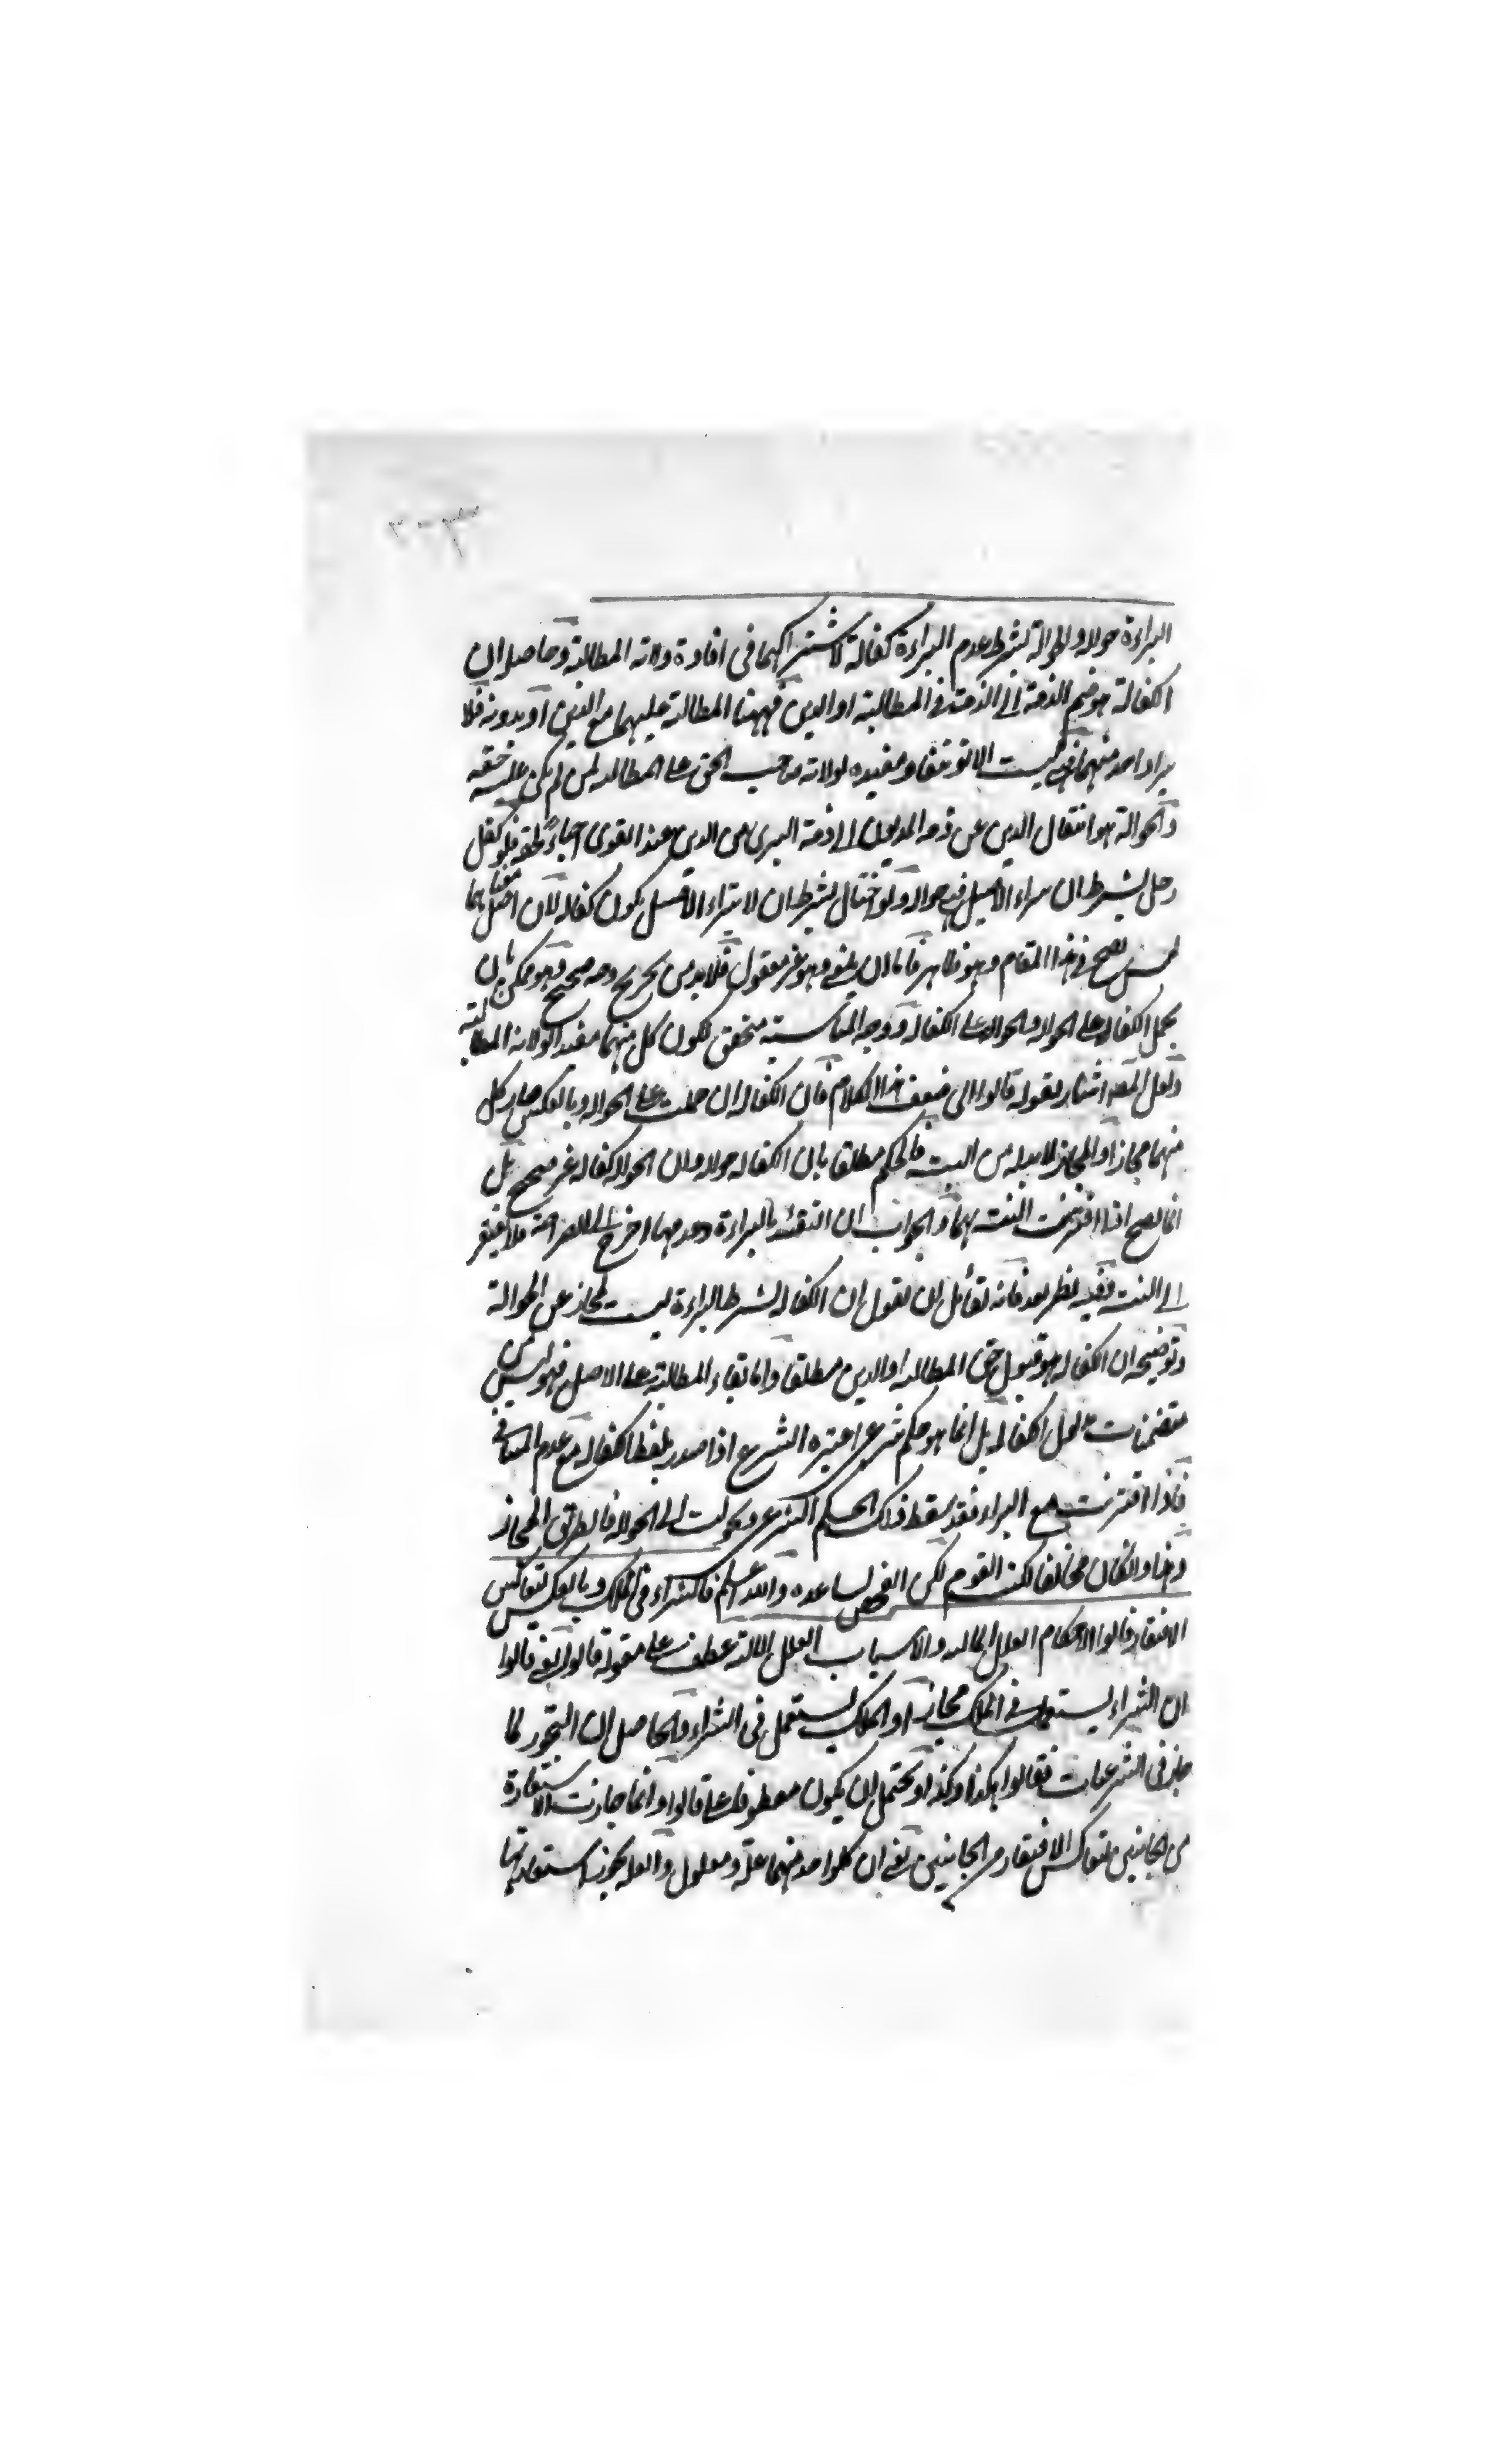 ٣٠٣
البراءة حواله والحوالة بشرط عدم البراءة كفالة لاشتراكهما فى افادة ولاية المطالبة وحاصله ان
الكفالة هو ضم الذمة الى الذمة فى المطالبة او الدين فههنا المطالبة عليهما مع الدين او بدونه فلا
يبراء احد منهما فهى ليست الا توثيقا ومفيده لولاية صاحب الحق على المطالبه لمن لم يكن عليه حقه
والحوالة هو انتقال الدين عن ذمه المديون الى ذمة البرى من الدين عند القوى فلو كفل
رجل بشرط ان يبراء الاصيل فهى حواله ولو احتال بشرط ان لا يبراء الاصيل يكون كفاله لان اصل معناهما
ليس يصح فى هذا المقام وهو ظاهر فاما ان يلغى وهو غير معقول فلا بد من تخريج وجه صحيح وهو ممكن بان
يحمل الكفاله على الحواله والحواله على الكفاله ووجه المناسبة متحقق لكون كل منهما مفيدا لولاية المطالبة
ولعل المصه اشار بقوله قالوا الى ضعف هذا الكلام فان الكفاله ان حملت على الحواله وبالعكس صار كل
منهما مجازا والمجاز لا بد له من النية فالحكم مطلقا بان الكفاله حواله وان الحواله كفاله غير صحيح بل
انما يصح اذا اقترنت النية بهما والجواب ان التقييد بالبراءة وعدمها اخرج الى الصراحة فلا يفتقر
الى النية وفيه نظر بعد فانه لقائل ان يقول ان الكفاله بشرط البراءة ليست بمجاز عن الحوالة
وتوضيحه ان الكفاله هو قبول حق المطالبه او الدين مطلقا واما بقاء المطالبة على الاصل فهو ليس من
متضمنات مدلول الكفاله بل انما هو حكم شرعى اعتبره الشرع اذا صدر بلفظ الكفاله مع عدم المنافى
فاذا اقترنت مع البراءه فقد سقط ذلك الحكم الشرعى وتحولت الى الحواله لا بطريق المجاز
وهذا وان كان مخالفا لكتب القوم لكن الفحص يساعده والله اعلم فالشراء فى الملك وبالعكس لتعاكس
الافتقار قالوا الاحكام العلل المالية والاسباب العلل الالية عطف على مقولة قالوا يعنى قالوا
ان الشراء يستعمل فى الملك مجازا والملك يستعمل فى الشراء والحاصل ان التجوز لما
جاز فى الشرعيات فقالوا هكذا وكذا ويحتمل ان يكون معطوفا على قالوا وانما جازت الاستعارة
من الجانبين لتعاكس الافتقار من الجانبين يعنى ان كل واحد منهما علة ومعلول والعله يجوز استعارتها